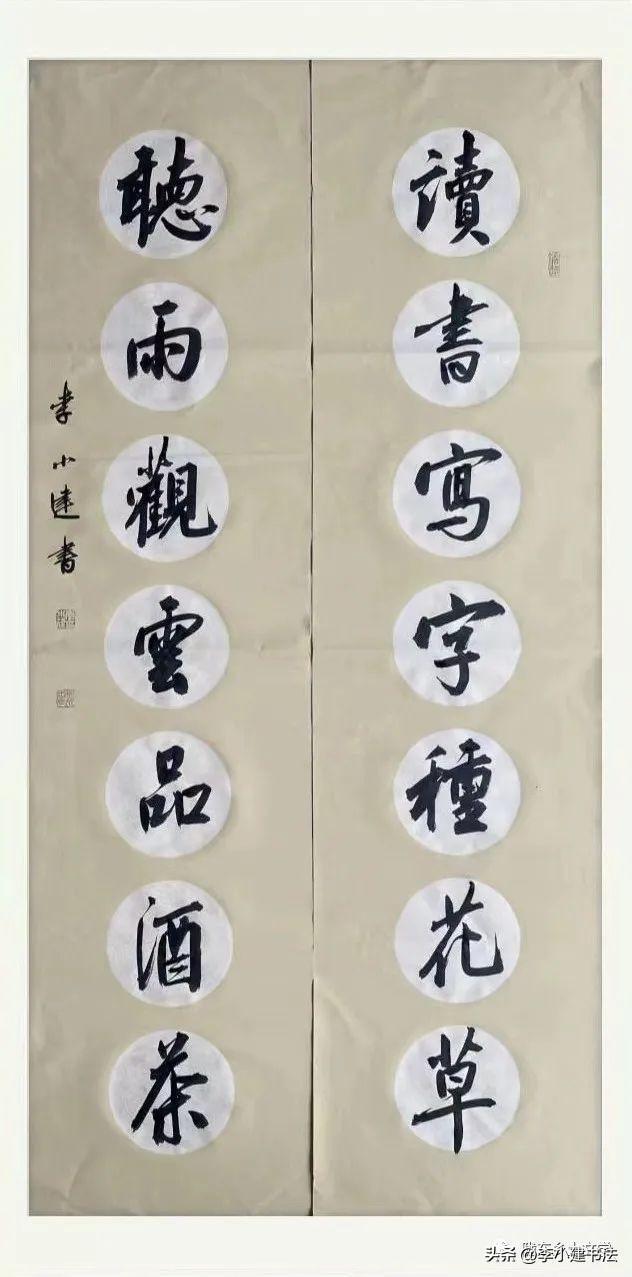 讀書寫字種花草
聽雨觀雲品酒茶
李小建書
头条 @李小建书法